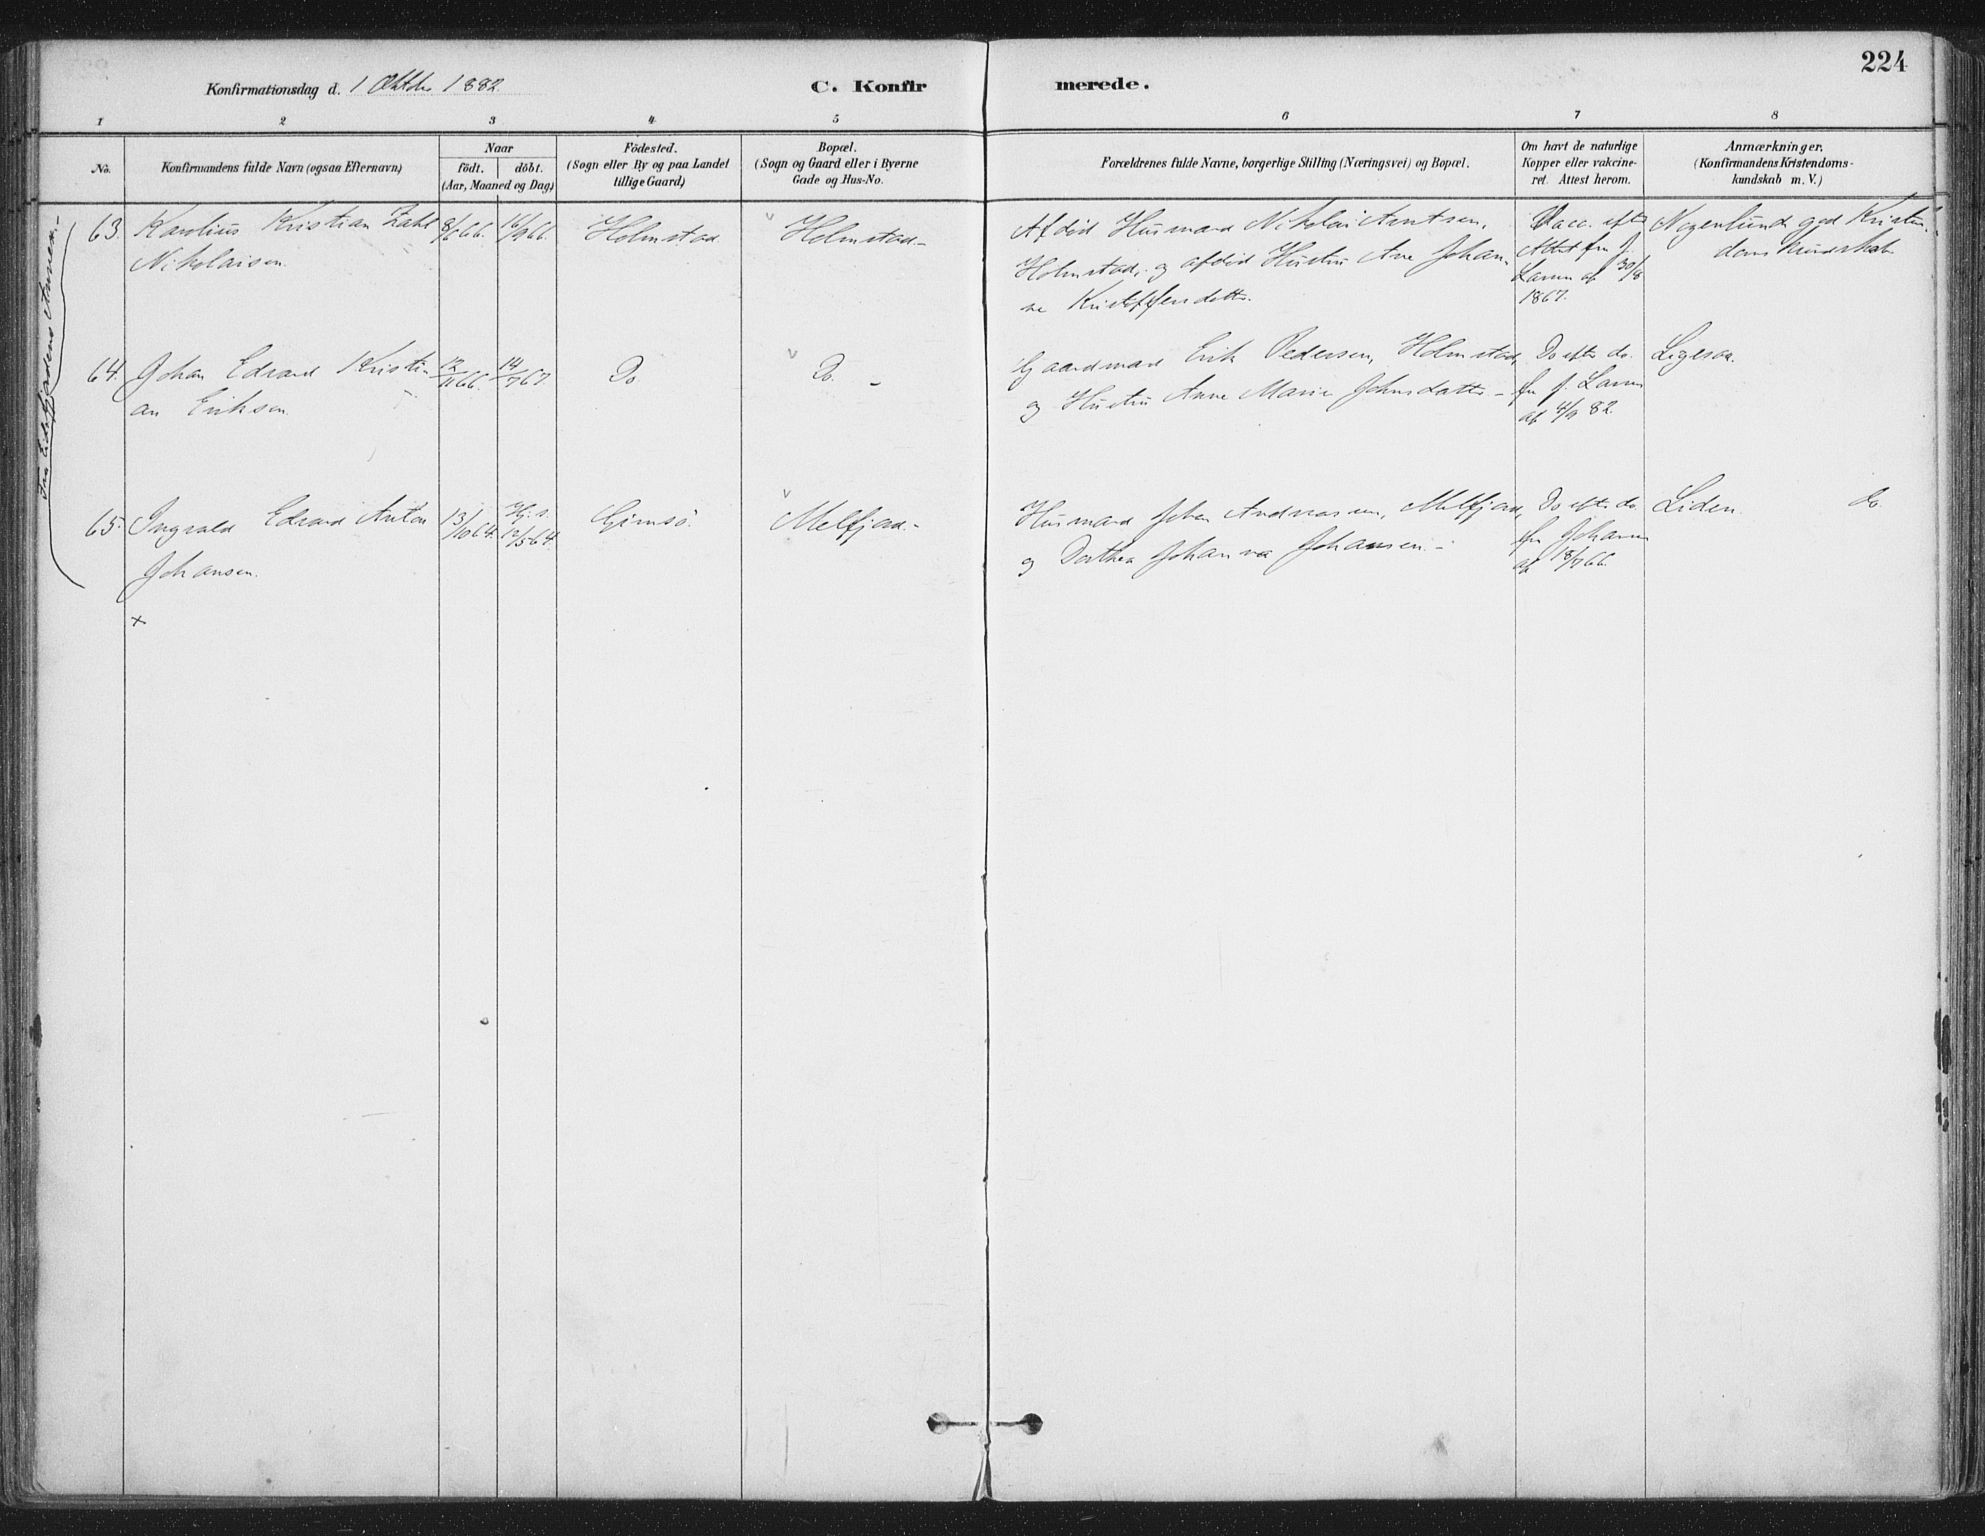 224
Konfirmationsdag d. 1 Oktbr 1882
C. Konfirmerede.
1 2 3 4 5 6 7 8
No.
Konfirmandens fulde Navn (ogsaa Efternavn)
Naar
födt. döbt.
(Aar, Maaned og Dag)
Födested.
(Sogn eller By og paa Landet
tillige Gaard)
Bopæl.
(Sogn og Gaard eller i Byerne
Gade og Hus-No.
Forældrenes fulde Navne, borgerlige Stilling (Næringsvei) og Bopæl.
Om havt de naturlige
Kopper eller vakcine-
ret. Attest herom.
Anmærkninger.
(Konfirmandens Kristendoms-
kundskab m. V.)
Fra Eidsfjordens Annex.-
63. Karolius Kristian Zahl
Nikolaisen.
8/6 66. 16/9 66.
Holmstad
Holmstad-
Afdöd Husmand Nikolai Arntsen,
Holmstad, og afdöd Hustru Ane Johan-
ne Kristoffersdatter.
Vacc. efter
Attest fra J.
Larsen af 30/8
1867.
Nogenlunde god Kristen-
domskundskab
64. Johan Edvard Kristi-
an Eriksen.
12/11 66. 14/7 67
Do
Do. -
Gaardmand Erik Pedersen, Holmstad,
og Hustru Anne Marie Johnsdatter -
Do efter do.
fra J. Larsen
af 4/9 82.
Ligesaa.
65. Ingvald Edvard Anton
Johansen.
13/10 64. Hj. d.
12/5 64.
Gimsö.
Melfjord.-
Husmand Johan Andreassen, Melfjord,
og Dorthea Johanna Johansen.-
Do efter do.
fra Johansen
af 18/7 66.
Liden. do.
x